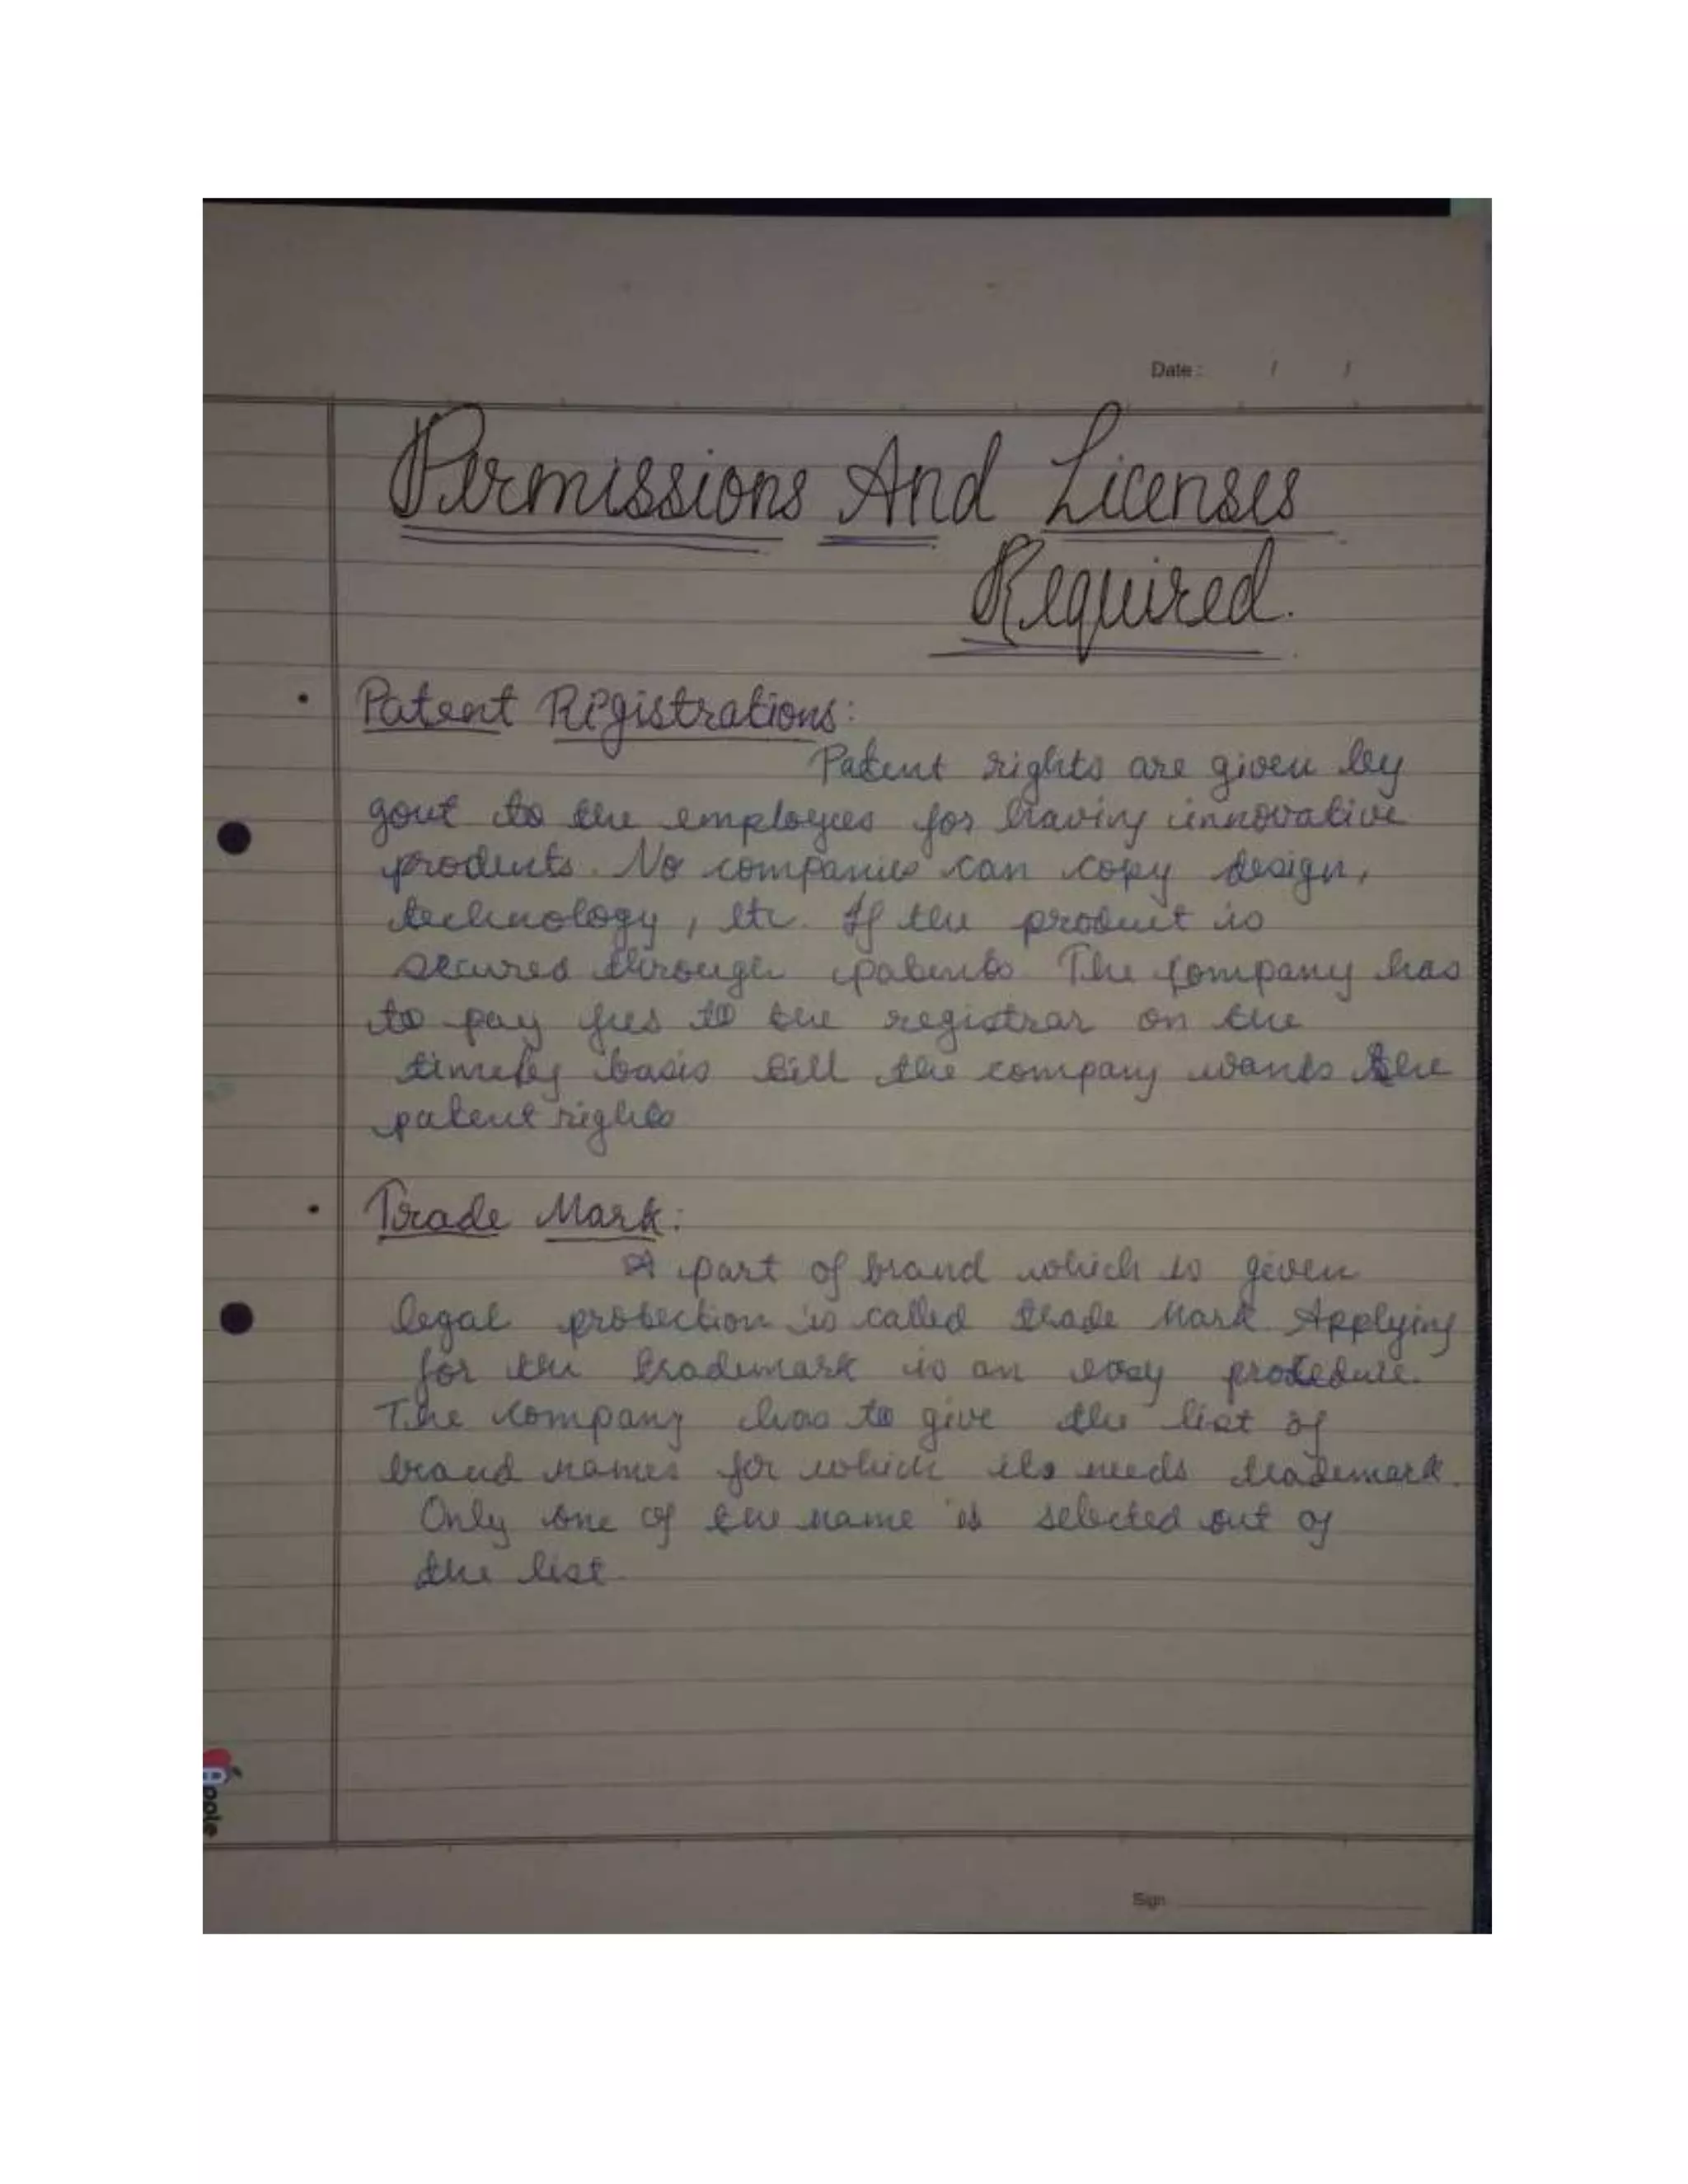 Date : / /
Permissions And Licenses
Required.
• Patent Registrations:
Patent rights are given by
govt to the employees for having innovative
products. No companies can copy design,
technology, etc. If the product is
secured through patents. The company has
to pay fees to the registrar on the
timely basis till the company wants the
patent rights
• Trade Mark:
A part of brand which is given
legal protection is called trade Mark. Applying
for the trademark is an easy procedure.
The company has to give the list of
brand names for which its needs trademark.
Only one of the name is selected out of
the list.
Apple
Sign